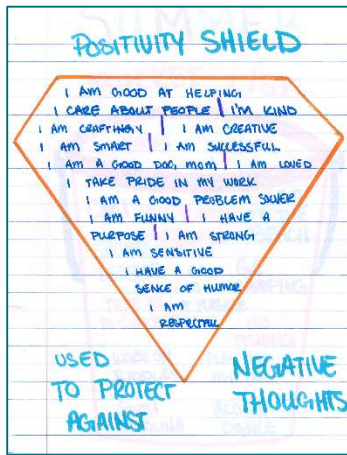 POSITIVITY SHIELD
I AM GOOD AT HELPING
I CARE ABOUT PEOPLE | I'M KIND
I AM CRAFTINGY | I AM CREATIVE
I AM SMART | I AM SUCCESSFUL
I AM A GOOD DOG MOM | I AM LOVED
I TAKE PRIDE IN MY WORK
I AM A GOOD PROBLEM SOLVER
I AM FUNNY | I HAVE A
PURPOSE | I AM STRONG
I AM SENSITIVE
I HAVE A GOOD
SENCE OF HUMOR
I AM
RESPECTFUL
USED
TO PROTECT
AGAINST
NEGATIVE
THOUGHTS